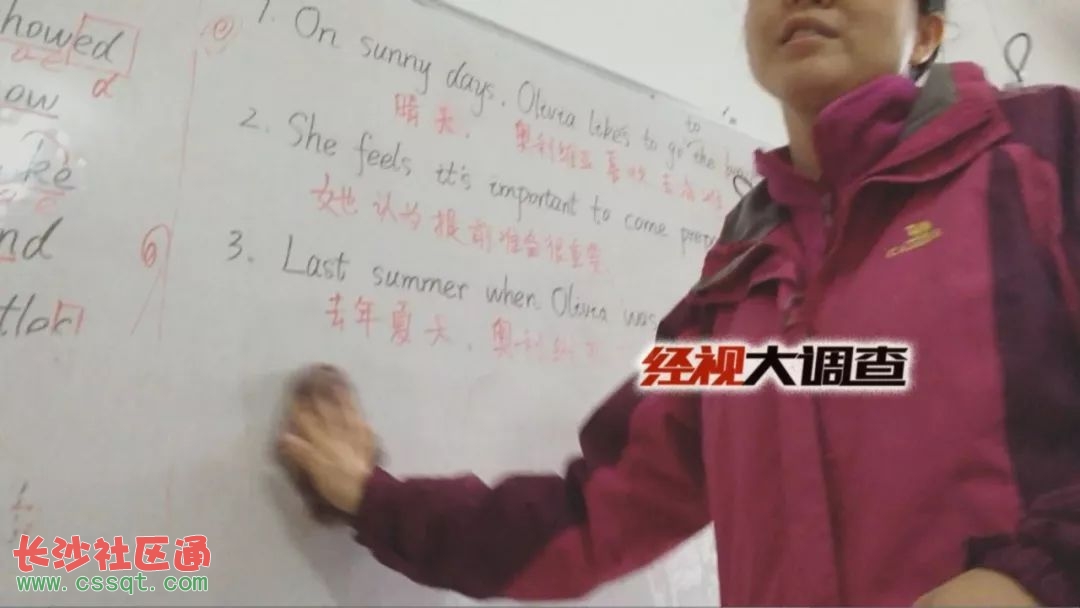 howed
d
ow
ke
nd
1. On sunny days, Olivia likes to go the
to
晴天，奥利维亚喜欢去
2. She feels it's important to come prep
她认为提前准备很重要.
3. Last summer when Olivia was
去年夏天，奥利
经视大调查
长沙社区通
www.cssqt.com